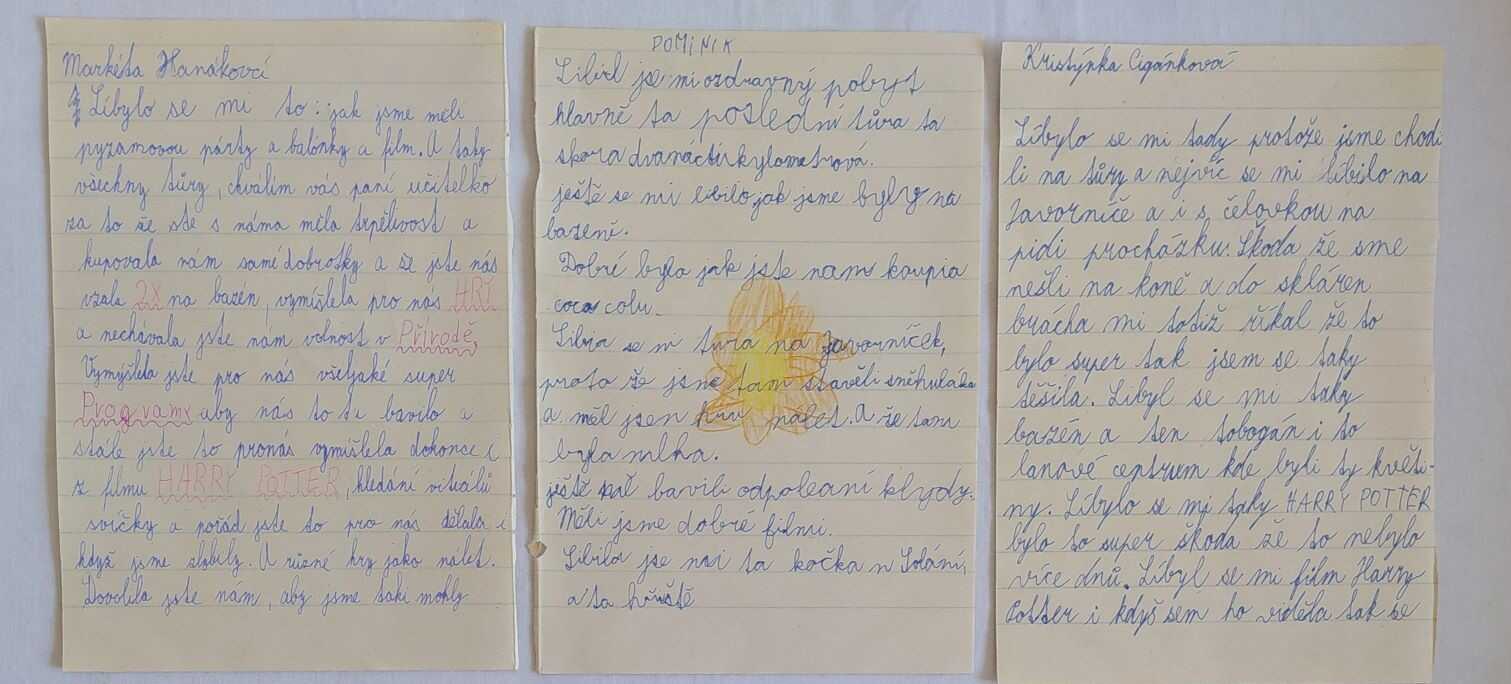 Markéta Hanáková
Líbylo se mi to: jak jsme měli
pyzamovou párty a balónky a film. A taky
všechny túry, chválim vás paní učitelko
za to že ste s náma měla trpělivost a
kupovala nám samé dobrotky a že jste nás
vzala 2X na bazén, vymíšlela pro nás HRI.
a nechávala jste nám volnost v Přírodě,
Vymýšlela jste pro nás všeljaké super
Programy aby nás to tu bavilo a
stále jste to pronás vymíšlela dokonce i
z filmu HARRY POTTER, hledání viteálů
svíčky a pořád jste to pro nás dělala i
když jsme zlobily. A různé hry jako nálet.
Dovolila jste nám, aby jsme taki mohly
DOMINIK
Libil jse mi ozdravný pobyt
hlavně ta poslední túra ta
skora dvanáctikylometrová.
ještě se mi libilo jak jsme byly na
bazeně.
Dobré bylo jak jste nam koupia
coca colu.
Libia se mi tura na Javorníček,
proto že jsme tam stavěli sněhuláka
a měl jsen hru nálet. A že tam
byla mlha.
ještě bavili odpoleaní klydy.
Měli jsme dobré filmi.
Libila jse mi ta kočka n Soláni,
a ta hřiště
Kristýnka Cigánková
Líbylo se mi tady protože jsme chodi
li na túry a nejvíc se mi líbilo na
Javorníče a i s čelovkou na
pidi procházku. Škoda že sme
nešli na koně a do skláren
brácha mi totiž říkal že to
bylo super tak jsem se taky
těšila. Líbyl se mi taky
bazén a ten tobogán i to
lanové centrum kde byli ty květi-
ny. Líbylo se mi taky HARRY POTTER
bylo to super škoda že to nebylo
více dnů. Líbyl se mi film Harry
Potter i když sem ho viděla tak se